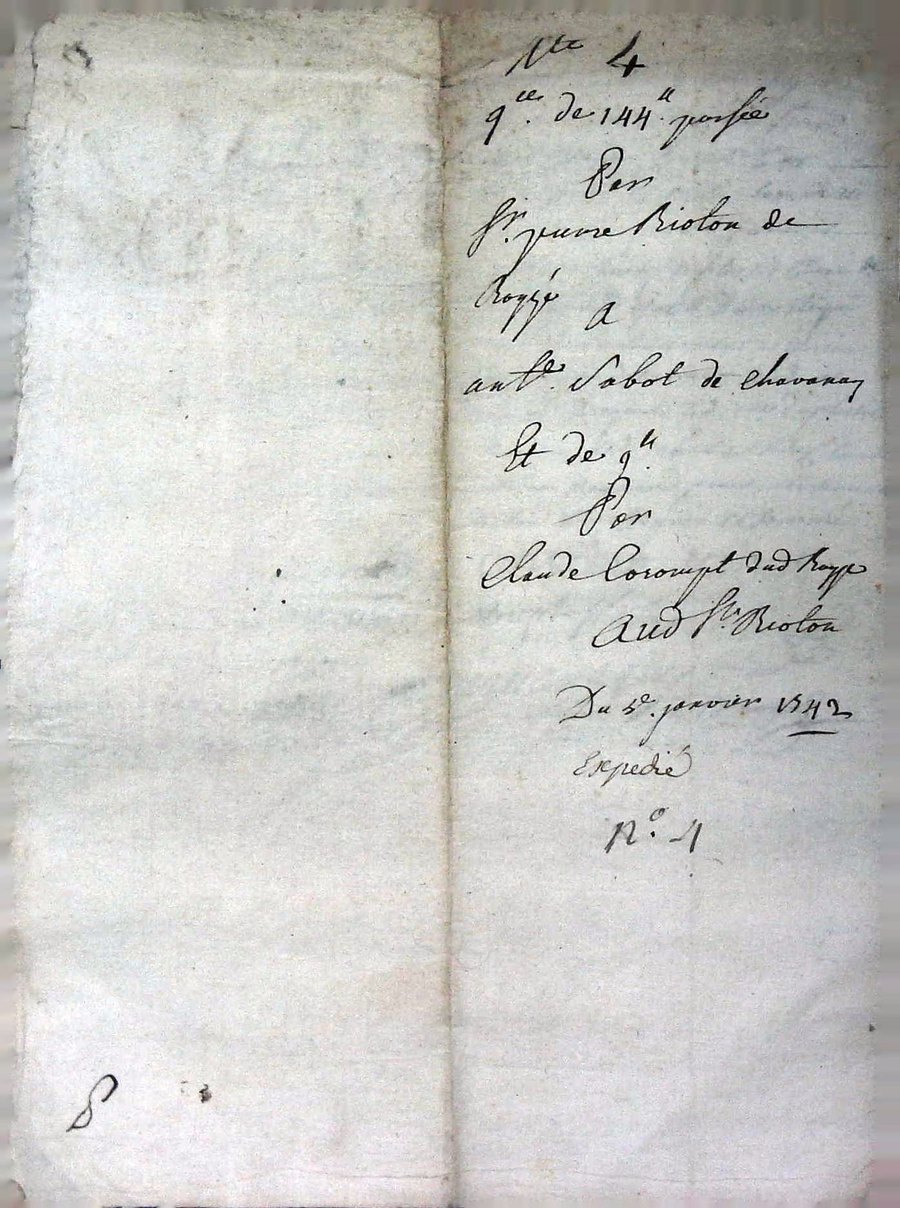 Nte 4
qce. de 144ll. passée
Par
Sr. pierre Rioton de
Royzé
A
antne. Sabot de Chavanay
Et de qll.
Par
Claude Corompt dud Royze
Aud Sr. Rioton
Du 5e. janvier 1742
Expedié
N°. 4
8